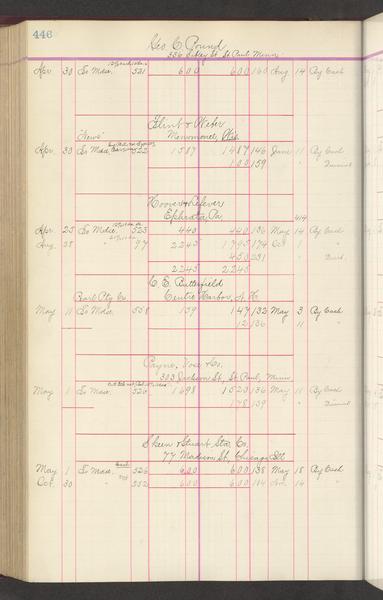 446
Geo. C. Pound
336 St. Paul Minn
Apr 30 To Mdse. 521 600 600 160 Aug 14 By Cash
Flint & Weber
"News" Menomonie, Wis.
Apr. 30 To Mdse. 522 1587 1487 146 June 11 By Cash
100 159 "
Hoover & Lefever
Ephrata Pa
Apr 25 To Mdse. 523 440 440 136 May 14 By Cash
Aug. 28 " 97 2245 1795 174 Oct 1 "
450 231 "
2245 2245
C. E. Butterfield
Centre Harbor, N. H.
May 11 To Mdse. 558 159 147 132 May 3 By Cash
12 136 11 "
Payne, & Co.
303 Jackson St, St. Paul, Minn
May 1 To Mdse. 520 1698 1520 136 May 11 By Cash
178 159 "
Skeen & Stuart Sta. Co.
77 Madison St, Chicago Ill
May 1 To Mdse. 526 600 600 138 May 18 By Cash
Oct. 30 " 252 600 600 184 Nov. 14 "